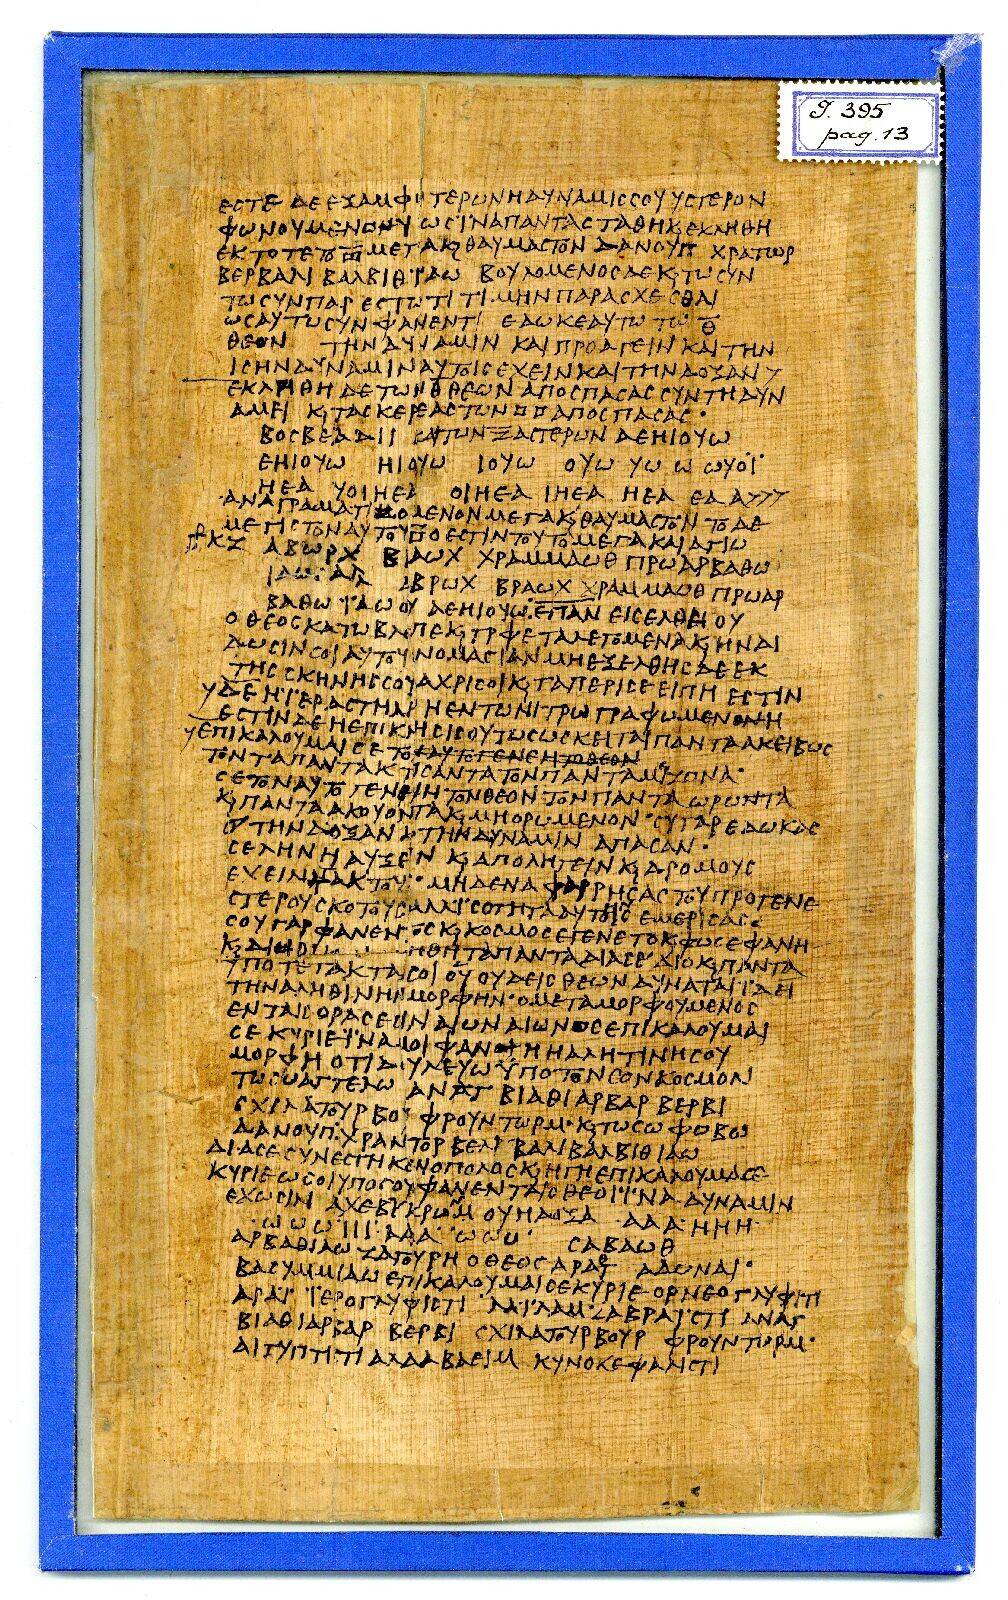 J. 395
pag. 13
ΕΣΤΕ ΔΕ ΕΞ ΑΜΦΙΤΕΡΩΝ Η ΔΥΝΑΜΙΣ ΣΟΥ ΥΣΤΕΡΟΝ
ΦΩΝΟΥΜΕΝΟΝ ΩΣ ΙΝΑ ΠΑΝΤΑ ΣΤΑΘΗ Κ ΕΚΛΗΘΗ
ΜΕΓΑ Κ ΘΑΥΜΑΣΤΟΝ ΔΑΝΟΥΠ ΧΡΑΤΩΡ
ΒΕΡΒΑΛΙ ΒΑΛΒΙΘ ΙΑΩ ΒΟΥΛΟΜΕΝΟΣ ΔΕ Κ ΤΩ ΣΥΝ
ΤΩ ΣΥΝΠΑΡΕΣΤΩΤΙ ΤΙΜΗΝ ΠΑΡΑΣΧΕΣΘΑΙ
ΩΣ ΑΥΤΩ ΣΥΝΦΑΝΕΝΤΙ ΕΔΩΚΕ ΑΥΤΩ ΤΩ Θ
ΘΕΩΝ ΤΗΝ ΔΥΝΑΜΙΝ ΚΑΙ ΠΡΟΑΓΕΙΝ ΚΑΙ ΤΗΝ
ΙΣΗΝ ΔΥΝΑΜΙΝ ΑΥΤΟΙΣ ΕΧΕΙΝ ΚΑΙ ΤΗΝ ΔΟΞΑΝ
ΕΚΛΗΘΗ ΔΕ ΤΩΝ Θ ΘΕΩΝ ΑΠΟΣΠΑΣΑΣ ΣΥΝ ΤΗ ΔΥΝ
ΑΜΕΙ Κ ΤΑΣ ΚΕΡΕΑΣ ΤΩΝ ΑΠΟΣΠΑΣΑΣ
ΒΟΣΒΕΑΔΙΙ Κ ΤΩΝ Ζ ΑΣΤΕΡΩΝ ΑΕΗΙΟΥΩ
ΕΗΙΟΥΩ ΗΙΟΥΩ ΙΟΥΩ ΟΥΩ ΥΩ Ω ΩΥΟΙ
ΗΕΑ ΥΟΙΗΕΑ ΟΙΗΕΑ ΙΗΕΑ ΗΕΑ ΕΑ Α
ΑΝΑΓΡΑΜΑΤΙΖΟΜΕΝΟΝ ΜΕΓΑ Κ ΘΑΥΜΑΣΤΟΝ ΤΟ ΔΕ
ΜΕΓΙΣΤΟΝ ΑΥΤΟΥ Ο ΕΣΤΙΝ ΤΟΥΤΟ ΜΕΓΑ ΚΑΙ ΑΓΙΩ
ΚΖ ΑΒΩΡΧ ΒΡΑΩΧ ΧΡΑΜΜΑΩΘ ΠΡΩΑΡΒΑΘΩ
ΙΑΩ ΑΒΡΩΧ ΒΡΑΩΧ ΧΡΑΜΜΑΩΘ ΠΡΩΑΡ
ΒΑΘΩ ΙΑΩ ΟΥ ΑΕΗΙΟΥΩ ΕΠΑΝ ΕΙΣΕΛΘΗ ΟΥ
Ο ΘΕΟΣ ΚΑΤΩ ΒΛΕΠΕ Κ ΓΡΑΦΕ ΤΑ ΛΕΓΟΜΕΝΑ Κ ΗΝ ΔΙ
ΔΩΣΙΝ ΣΟΙ ΑΥΤΟΥ ΝΟΜΑΣΙΑΝ ΜΗ ΕΞΕΛΘΗΣ ΔΕ ΕΚ
ΤΗΣ ΣΚΗΝΗΣ ΣΟΥ ΑΧΡΙ ΣΟΙ Κ ΤΑ ΠΕΡΙ ΣΕ ΕΙΠΗ ΕΣΤΙΝ
ΔΕ Η ΙΕΡΑ ΣΤΗΛΗ Η ΕΝ ΤΩ ΝΙΤΡΩ ΓΡΑΦΩΜΕΝΟΝΗ
ΕΣΤΙΝ ΔΕ Η ΕΠΙΚΛΗΣΙΣ ΟΥΤΩΣ ΩΣ ΚΕΙΤΑΙ ΠΑΝΤΑ ΑΚΕΙΒΩΣ
ΕΠΙΚΑΛΟΥΜΑΙ ΣΕ ΤΟ
ΤΟΝ ΤΑ ΠΑΝΤΑ ΚΤΙΣΑΝΤΑ ΤΟΝ ΠΑΝΤΑ
ΣΕ ΤΟΝ ΑΥΤΟΓΕΝΝΗΤΟΝ ΘΕΟΝ ΤΟΝ ΠΑΝΤΑ ΩΡΩΝΤΑ
Κ ΠΑΝΤΑ ΑΚΟΥΟΝΤΑ Κ ΜΗ ΟΡΩΜΕΝΟΝ ΣΥ ΓΑΡ ΕΔΩΚΑΣ
ΤΗΝ ΔΟΞΑΝ Κ ΤΗΝ ΔΥΝΑΜΙΝ ΑΠΑΣΑΝ
ΣΕΛΗΝΗ ΑΥΞΕΙΝ Κ ΑΠΟΛΗΓΕΙΝ Κ ΔΡΟΜΟΥΣ
ΕΧΕΙΝ ΤΑΚΤΟΥΣ ΜΗΔΕΝΑ ΦΑΡΡΗΣΑΣ ΤΟΥ ΠΡΟΓΕΝΕ
ΣΤΕΡΟΥ ΣΚΟΤΟΥΣ ΑΛΛ ΙΣΟΤΗΤΑ ΑΥΤΟΙΣ ΕΜΕΡΙΣΑΣ
ΣΟΥ ΓΑΡ ΦΑΝΕΝΤΟΣ Κ ΚΟΣΜΟΣ ΕΓΕΝΕΤΟ Κ ΦΩΣ ΕΦΑΝΗ
ΗΘΗ ΤΑ ΠΑΝΤΑ ΔΙΑ ΣΕ ΔΙΟ Κ ΠΑΝΤΑ
ΥΠΟΤΕΤΑΚΤΑΙ ΣΟΙ ΟΥ ΟΥΔΕΙΣ ΘΕΩΝ ΔΥΝΑΤΑΙ ΙΔΕΙ
ΤΗΝ ΑΛΗΘΙΝΗΝ ΜΟΡΦΗΝ Ο ΜΕΤΑΜΟΡΦΟΥΜΕΝΟΣ
ΕΝ ΤΑΙΣ ΟΡΑΣΕΣΙΝ ΑΙΩΝ ΑΙΩΝΟΣ ΕΠΙΚΑΛΟΥΜΑΙ
ΣΕ ΚΥΡΙΕ ΙΝΑ ΜΟΙ ΦΑΝΗ Η ΑΛΗΤΙΝΗ ΣΟΥ
ΜΟΡΦΗ ΟΤΙ ΔΟΥΛΕΥΩ ΥΠΟ ΤΟΝ ΣΟΝ ΚΟΣΜΟΝ
ΤΩ ΣΩ ΑΓΓΕΛΩ ΑΝΑΓ ΒΙΑΘΙΑΡΒΑΡ ΒΕΡΒΙ
ΣΧΙΛΑΤΟΥΡ ΒΟΥ ΦΡΟΥΝΤΩΡΜ Κ ΤΩ ΣΩ ΦΟΒΩ
ΔΑΝΟΥΠ ΧΡΑΝΤΟΡ ΒΕΛΙ ΒΑΛΙ ΒΑΛΒΙΘ ΙΑΩ
ΔΙΑ ΣΕ ΣΥΝΕΣΤΗΚΕΝ Ο ΠΟΛΟΣ Κ Η ΓΗ ΕΠΙΚΑΛΟΥΜΑΙ ΣΕ
ΚΥΡΙΕ ΩΣ ΟΙ ΥΠΟ ΣΟΥ ΦΑΝΕΝΤΑΙΣ ΘΕΟΙ ΙΝΑ ΔΥΝΑΜΙΝ
ΕΧΩΣΙΝ ΑΧΕΒΥΚΡΩΜ ΟΥ Η ΔΟΞΑ ΑΑΑ ΗΗΗ
ΩΩΩ ΙΙΙ ΑΑΑ ΩΩΩ ΣΑΒΑΩΘ
ΑΡΒΑΘΙΑΩ ΖΑΓΟΥΡΗ Ο ΘΕΟΣ ΑΡΑΘ ΑΔΩΝΑΙ
ΒΑΣΥΜΜΙΑΩ ΕΠΙΚΑΛΟΥΜΑΙ ΣΕ ΚΥΡΙΕ ΟΡΝΕΟΓΛΥΦΙΣΤΙ
ΑΡΑΙ ΙΕΡΟΓΛΥΦΙΣΤΙ ΛΑΙΛΑΜ ΑΒΡΑΙΣΤΙ ΑΝΑΓ
ΒΙΑΘΙΑΡΒΑΡ ΒΕΡΒΙ ΣΧΙΛΑΤΟΥΡ ΒΟΥΡ ΦΡΟΥΝΤΩΡΜ
ΑΙΓΥΠΤΙΣΤΙ ΑΛΔΑΒΑΕΙΜ ΚΥΝΟΚΕΦΑΛΙΣΤΙ